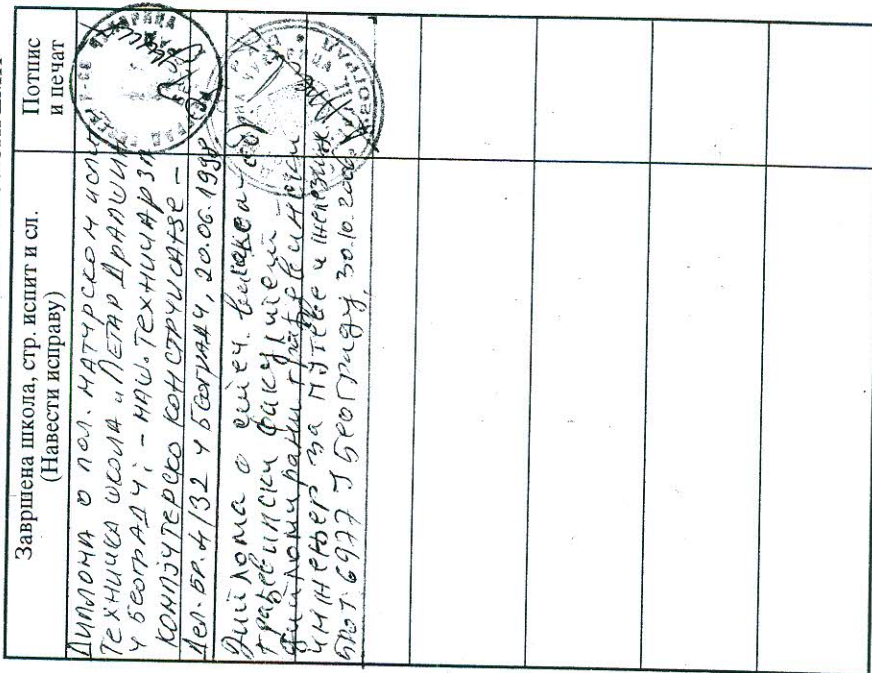 Завршена школа, стр. испит и сл.
(Навести исправу)
Потпис
и печат
Диплома о пол. матурском испиту
Техничка школа „Петар Драпшин
у Београду: – маш. техничар за
компјутерско конструисање –
Дел. бр. 4/32 у Београду, 20.06.1998
Диплома о стеч. високом
Грађевински факултет –
дипломирани грађевински
инжењер за путеве и железнице
број: 6977 У Београду, 30.10.